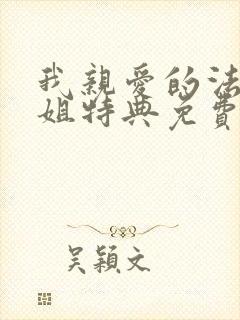 我親愛的法
姐特典免費
吳穎文